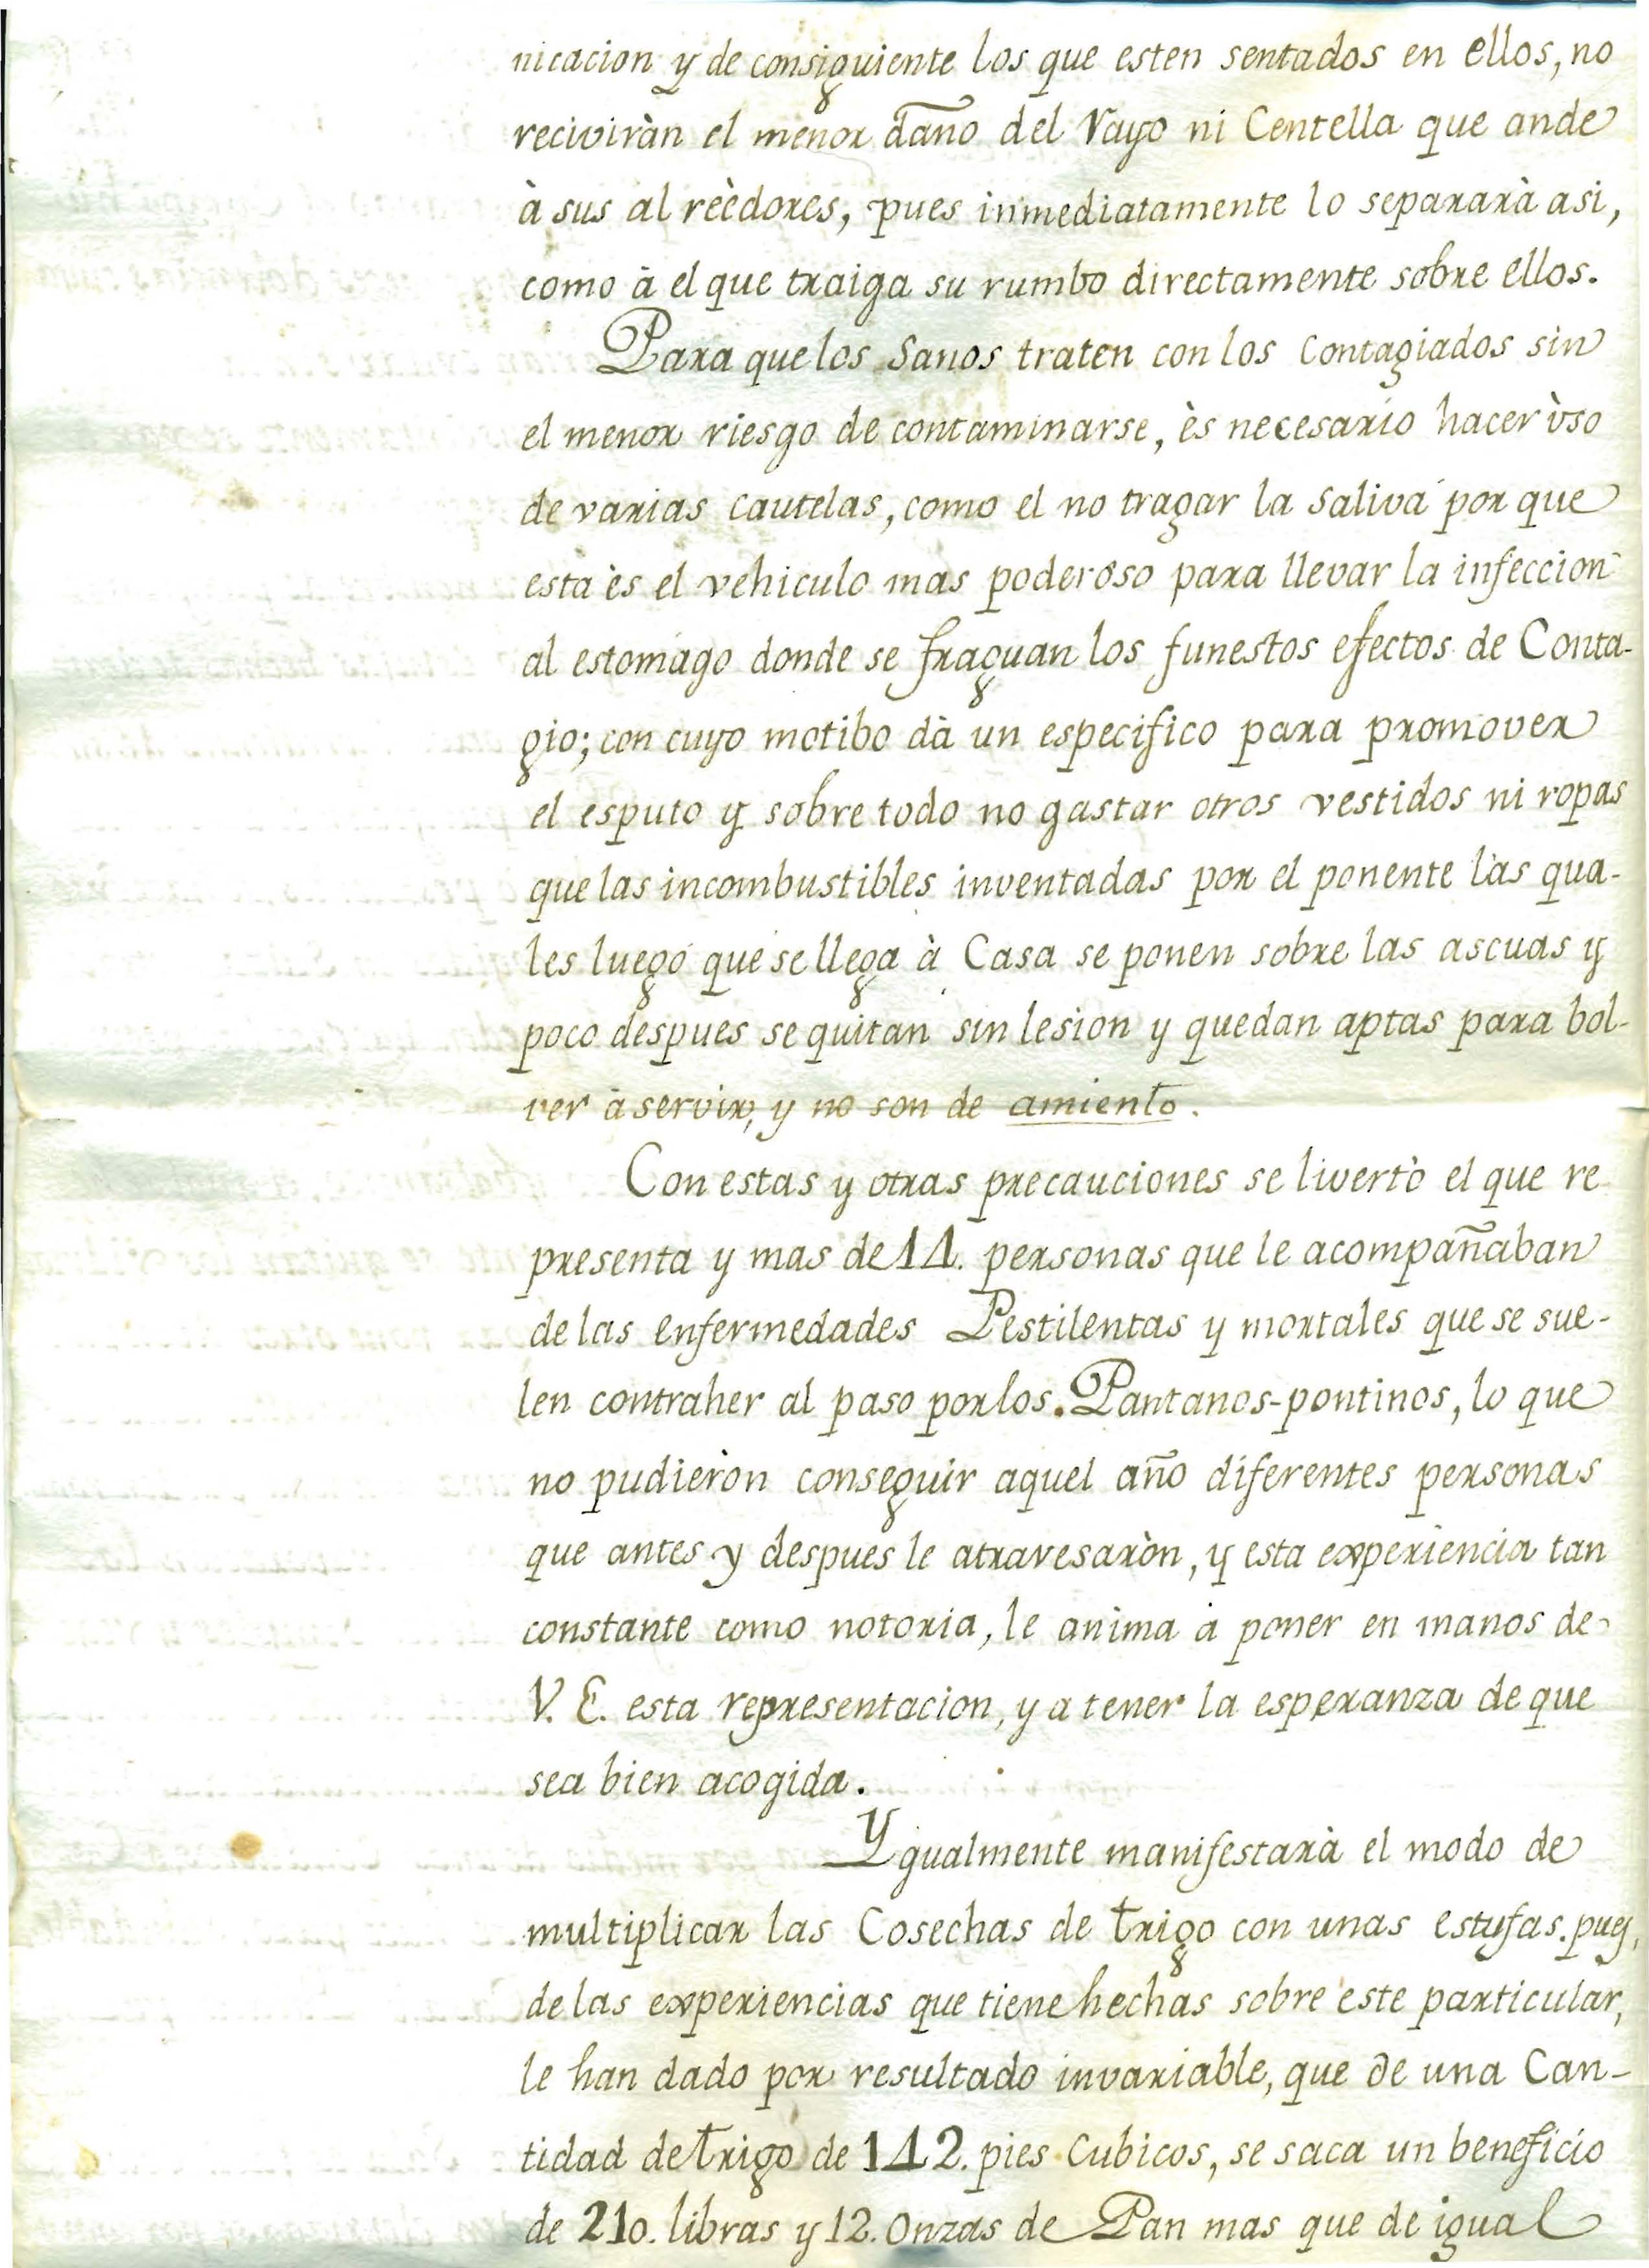 nicacion y de consiguiente los que esten sentados en ellos, no
reciviràn el menor daño del Rayo ni Centella que ande
à sus al rèèdores, pues inmediatamente lo separarà asi,
como à el que traiga su rumbo directamente sobre ellos.
Para que los Sanos traten con los Contagiados sin
el menor riesgo de contaminarse, ès necesario hacer ùso
de varias cautelas, como el no tragar la saliva por que
esta ès el vehiculo mas poderoso para llevar la infeccion
al estomago donde se fraguan los funestos efectos de Conta-
gio; con cuyo motibo dà un especifico para promover
el esputo y sobre todo no gastar otros vestidos ni ropas
que las incombustibles inventadas por el ponente las qua-
les luego que se llega à Casa se ponen sobre las ascuas y
poco despues se quitan sin lesion y quedan aptas para bol-
ver à servir, y no son de amiento.
Con estas y otras precauciones se livertò el que re
presenta y mas de 14. personas que le acompañaban
de las enfermedades Pestilentas y mortales que se sue-
len contraher al paso por los Pantanos-pontinos, lo que
no pudieròn conseguir aquel año diferentes personas
que antes y despues le atravesaròn, y esta experiencia tan
constante como notoria, le anima à poner en manos de
V. E. esta representacion, y a tener la esperanza de que
sea bien acogida.
Ygualmente manifestarà el modo de
multiplicar las Cosechas de trigo con unas estufas. pues,
de las experiencias que tiene hechas sobre este particular,
le han dado por resultado invariable, que de una Can-
tidad de trigo de 142. pies Cubicos, se saca un beneficio
de 210. libras y 12. Onzas de Pan mas que de igual